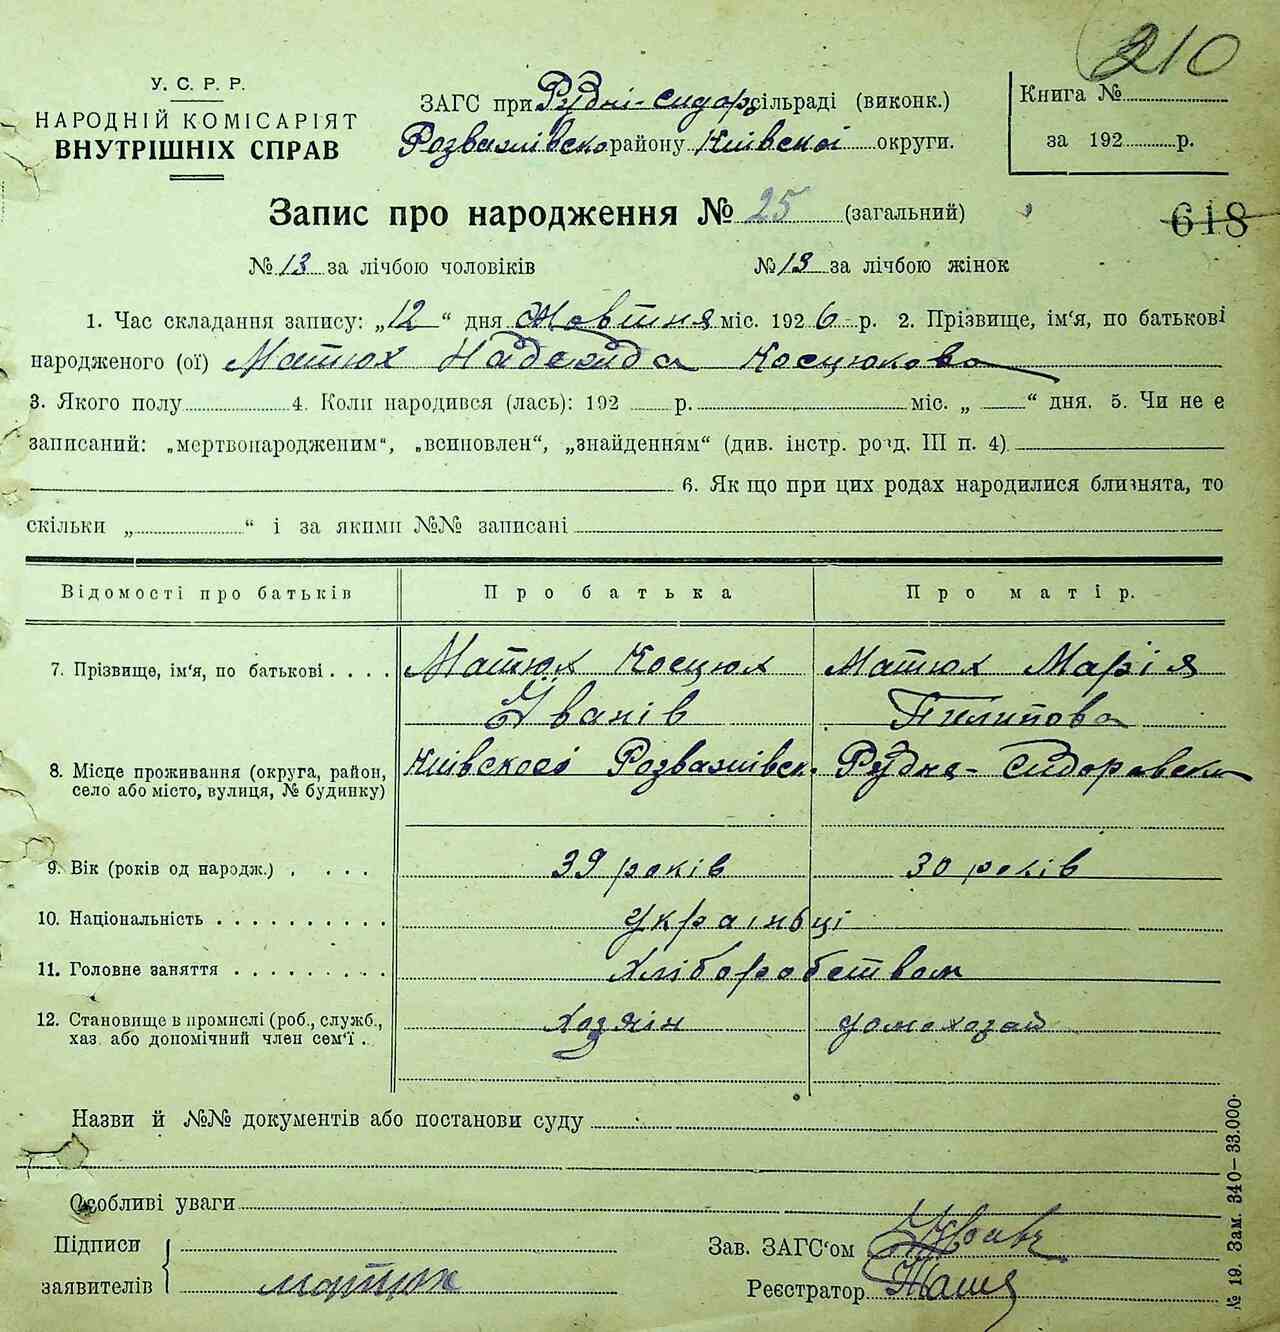 210
У. С. Р. Р.
НАРОДНІЙ КОМІСАРІЯТ
ВНУТРІШНІХ СПРАВ
ЗАГС при Рудні-сидор сільраді (виконк.)
Розважівско району Київскої округи.
Книга №
за 192 р.
Запис про народження № 25 (загальний)
618
№ 13 за лічбою чоловіків № 13 за лічбою жінок
1. Час складання запису: „12“ дня Жовтня міс. 1926 р. 2. Прізвище, ім'я, по батькові
народженого (ої) Матюх Надежда Косцюкова
3. Якого полу 4. Коли народився (лась): 192 р. міс. „ “ дня. 5. Чи не є
записаний: „мертвонародженим“, „всиновлен“, „знайденням“ (див. інстр. розд. III п. 4)
6. Як що при цих родах народилися близнята, то
скільки „ “ і за якими №№ записані
Відомості про батьків Про батька Про матір.
7. Прізвище, ім'я, по батькові . . . . Матюх Косцюк Матюх Марія
Йванів Пилипова
8. Місце проживання (округа, район, село або місто, вулиця, № будинку) Київскосі Розважівск. Рудня-сидоровска
9. Вік (років од народж.) . . . . 39 років 30 років
10. Національність . . . . . . . . . . українці
11. Головне заняття . . . . . . . . . хліборобством
12. Становище в промислі (роб., служб., хаз. або допомічний член сем'ї . хозяін домохозай
Назви й №№ документів або постанови суду
Особливі уваги
Підписи
заявителів Матюх
Зав. ЗАГС'ом
Реєстратор
№ 19. Зам. 340–33.000.